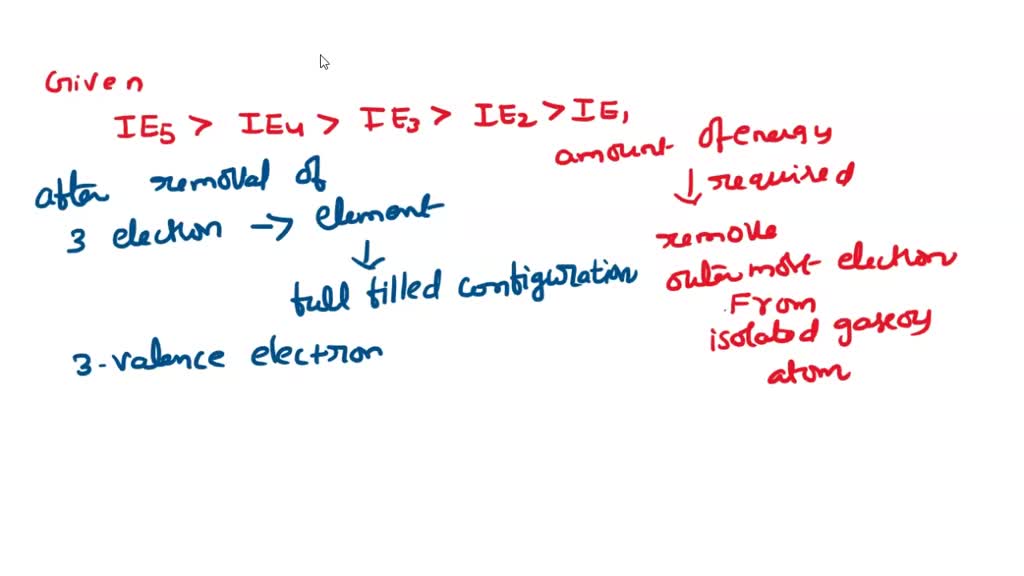 Given
IE5 > IE4 > IE3 > IE2 > IE1
amount of energy
↓ required
remove
outermost electron
From
isolated gaseous
atom
after removal of
3 election → element
↓
full filled configuration
3-valence electron